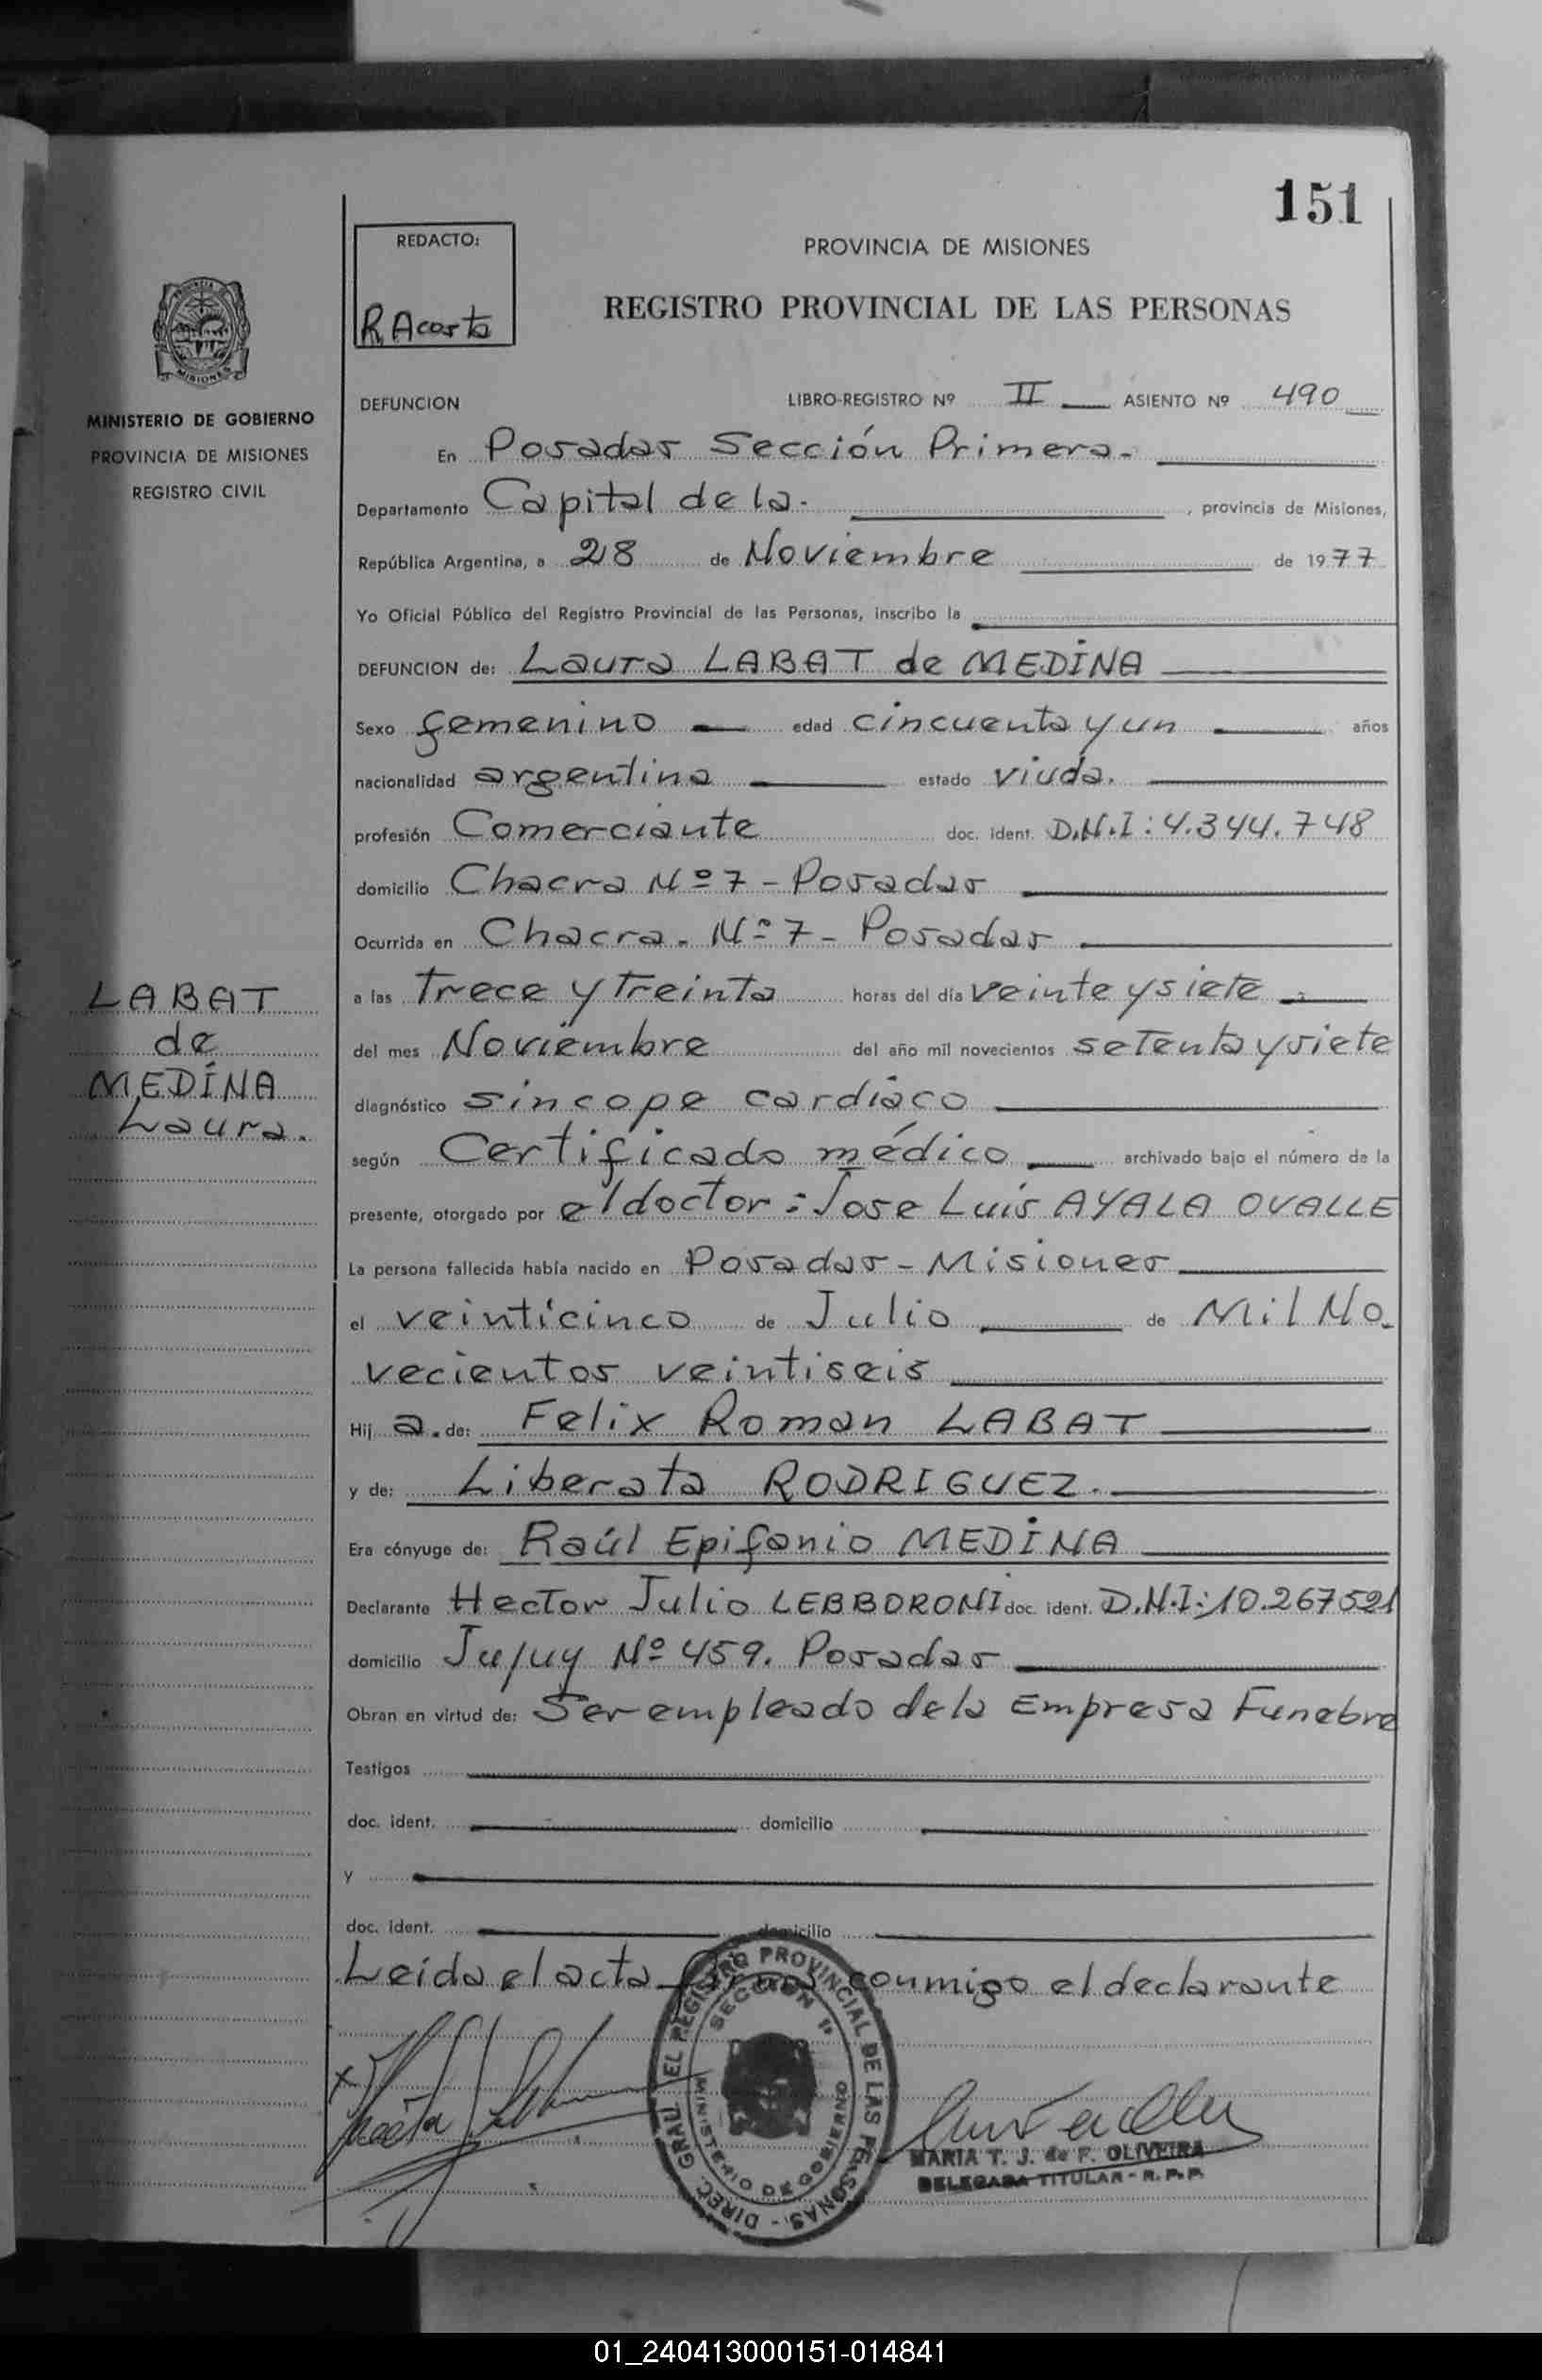 151
REDACTO:
R Acosta
PROVINCIA DE MISIONES
REGISTRO PROVINCIAL DE LAS PERSONAS
MINISTERIO DE GOBIERNO
PROVINCIA DE MISIONES
REGISTRO CIVIL
DEFUNCION LIBRO-REGISTRO Nº II ASIENTO Nº 490
En Posadas Sección Primera.
Departamento Capital de la. , provincia de Misiones,
República Argentina, a 28 de Noviembre de 1977
Yo Oficial Público del Registro Provincial de las Personas, inscribo la
DEFUNCION de: Laura LABAT de MEDINA
Sexo femenino edad cincuenta y un años
nacionalidad argentina estado viuda.
profesión Comerciante doc. ident. D.N.I: 4.344.748
domicilio Chacra Nº 7 - Posadas
Ocurrida en Chacra. Nº 7 - Posadas
a las Trece y Treinta horas del día veinte y siete
del mes Noviembre del año mil novecientos setenta y siete
diagnóstico sincope cardíaco
según Certificado médico archivado bajo el número de la
presente, otorgado por el doctor: Jose Luis AYALA OVALLE
La persona fallecida había nacido en Posadas - Misiones
el veinticinco de Julio de Mil No_
vecientos veintiseis
Hij a. de: Felix Roman LABAT
y de: Liberata RODRIGUEZ.
Era cónyuge de: Raúl Epifanio MEDINA
Declarante Hector Julio LEBBORONI doc. ident. D.N.I: 10.267521
domicilio Jujuy Nº 459. Posadas
Obran en virtud de: Ser empleado de la Empresa Funebre
Testigos
doc. ident. domicilio
y
doc. ident. domicilio
Leida el acta firma conmigo el declarante
LABAT
de
MEDINA
Laura.
DIREC. GRAL. DEL REGISTRO PROVINCIAL DE LAS PERSONAS.-
SECCION 1ª
MINISTERIO DE GOBIERNO
MARIA T. J. de F. OLIVEIRA
DELEGADA TITULAR - R.P.P.
01_240413000151-014841